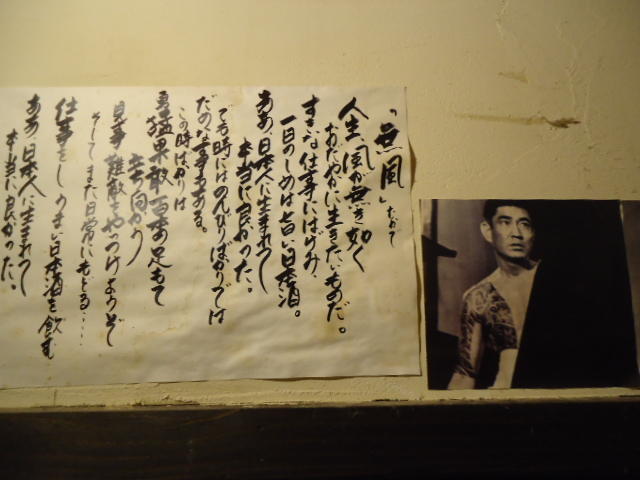 「無風」なかて
人生、風が無き如く
おだやかに生きたいものだ。
すきな仕事にはげみ、
一日のしめは旨い日本酒。
ああ、日本人に生まれて
本当に良かった。
でも時にはのんびりばかりでは
だめな事もある。
この時ばかりは
勇猛果敢 百本の足もて
立ち向かう
見事 難敵をやっつけようぞ
そしてまた日常にもどる・・・・
仕事をし、うまい日本酒を飲む
ああ、日本人に生まれて
本当に良かった。